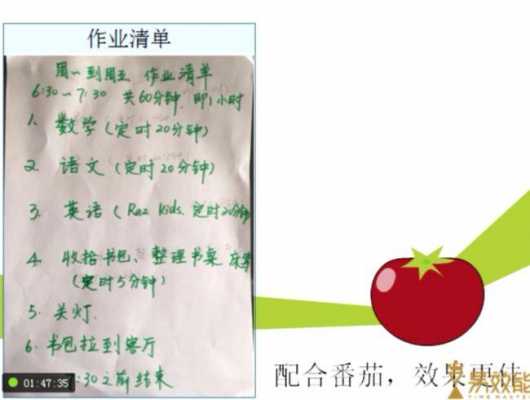 作业清单
周一到周五 作业清单
6:30~7:30 共60分钟,即1小时
1. 数学(定时20分钟)
2. 语文(定时20分钟)
3. 英语(Raz kids. 定时20分钟
4. 收拾书包、整理书桌
(定时5分钟)
5. 关灯.
6. 书包拉到客厅
:30之前结束
01:47:35
配合番茄,效果更佳
易效能
TIME MASTER